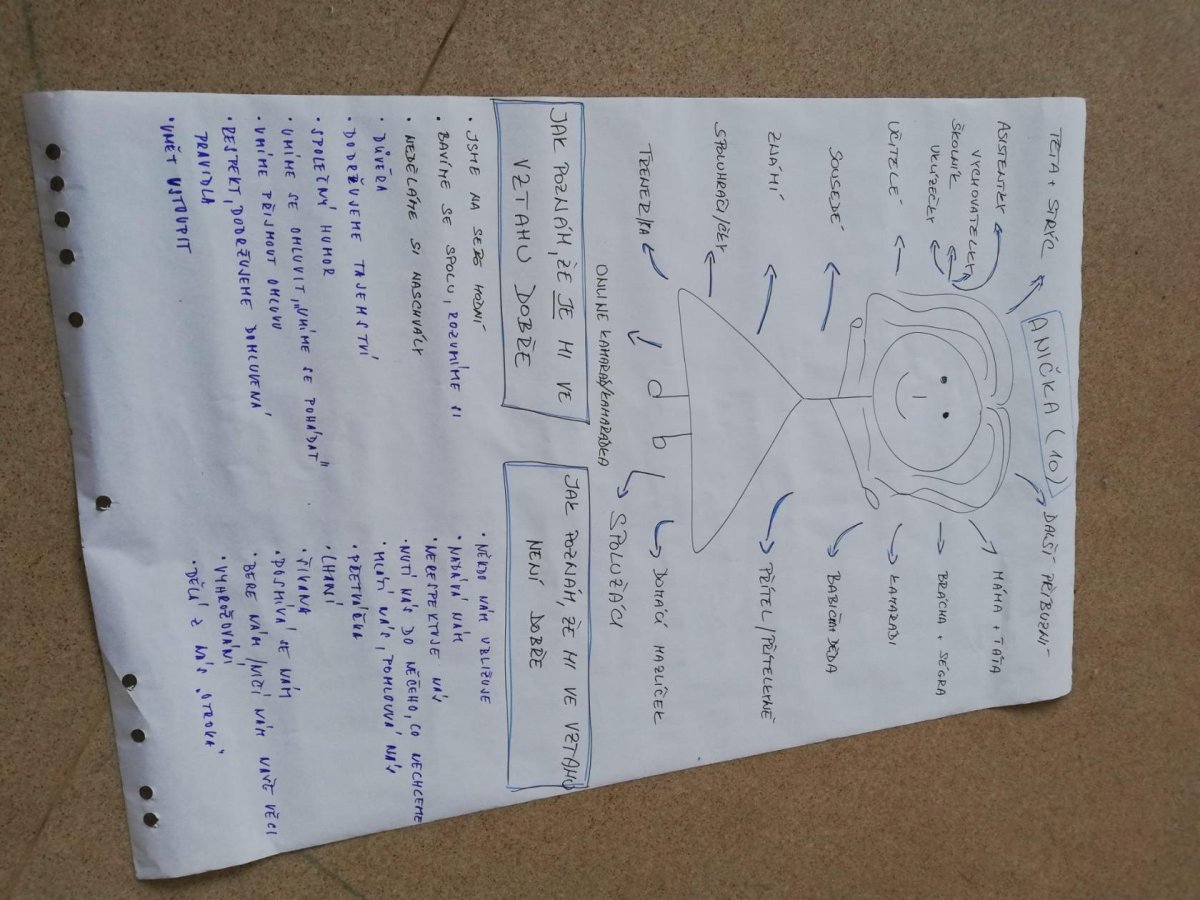 ANIČKA (10)
TETA + STRÝC
ASISTENTKY
VYCHOVATELKY
ŠKOLNÍK
UKLÍZEČKY
UČITELÉ
SOUSEDÉ
ZNÁMÍ
SPOLUHRÁČI/ČKY
TRENÉR/KA
ONLINE KAMARÁD/KAMARÁDKA
DALŠÍ PŘÍBUZNÍ
MÁMA + TÁTA
BRÁCHA + SÉGRA
KAMARÁDI
BABIČKA DĚDA
PŘÍTEL/PŘÍTELKYNĚ
DOMÁCÍ MAZLÍČEK
SPOLUŽÁCI
JAK POZNÁM, ŽE JE MI VE
VZTAHU DOBŘE
• JSME NA SEBE HODNÍ
• BAVÍME SE SPOLU, ROZUMÍME SI
• NEDĚLÁME SI NASCHVÁLY
• DŮVĚRA
• DODRŽUJEME TAJEMSTVÍ
• SPOLEČNÝ HUMOR
• UMÍME SE OMLUVIT, "UMÍME SE POHÁDAT"
• UMÍME PŘIJMOUT OMLUVU
• RESPEKT, DODRŽUJEME DOMLUVENÁ
PRAVIDLA
• UMĚT USTOUPIT
JAK POZNÁM, ŽE MI VE VZTAHU
NENÍ DOBŘE
• NĚKDO NÁM UBLIŽUJE
• NADÁVÁ NÁM
• NERESPEKTUJE NÁS
• NUTÍ NÁS DO NĚČEHO, CO NECHCEME
• MLÁTÍ NÁS, POMLOUVÁ NÁS
• PŘETVÁŘKA
• LHANÍ
• ŠIKANA
• POSMÍVÁ SE NÁM
• BERE NÁM/NIČÍ NÁM NAŠE VĚCI
• VYHROŽOVÁNÍ
• DĚLÁ Z NÁS "OTROKA"